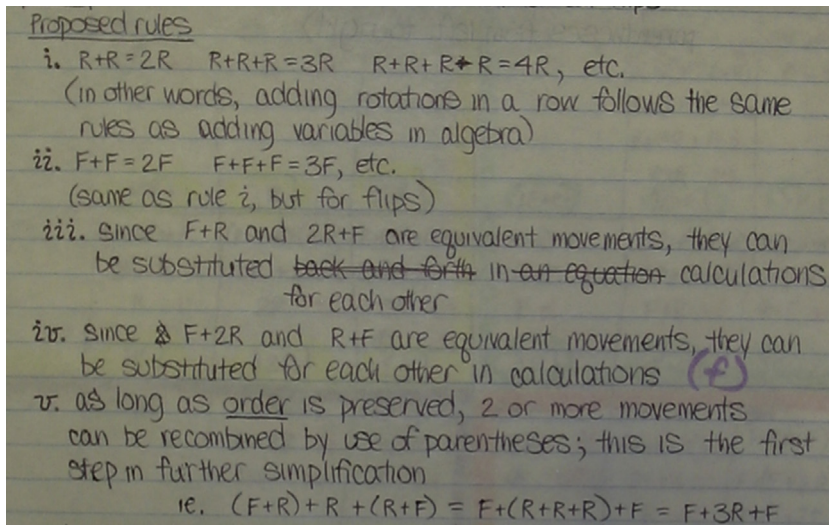 Proposed rules
i. R+R=2R R+R+R=3R R+R+R+R=4R, etc.
(in other words, adding rotations in a row follows the same
rules as adding variables in algebra)
ii. F+F=2F F+F+F=3F, etc.
(same as rule i, but for flips)
iii. since F+R and 2R+F are equivalent movements, they can
be substituted back and forth in an equation calculations
for each other
iv. since F+2R and R+F are equivalent movements, they can
be substituted for each other in calculations (f)
v. as long as order is preserved, 2 or more movements
can be recombined by use of parentheses; this is the first
step in further simplification
ie. (F+R)+R+(R+F) = F+(R+R+R)+F = F+3R+F